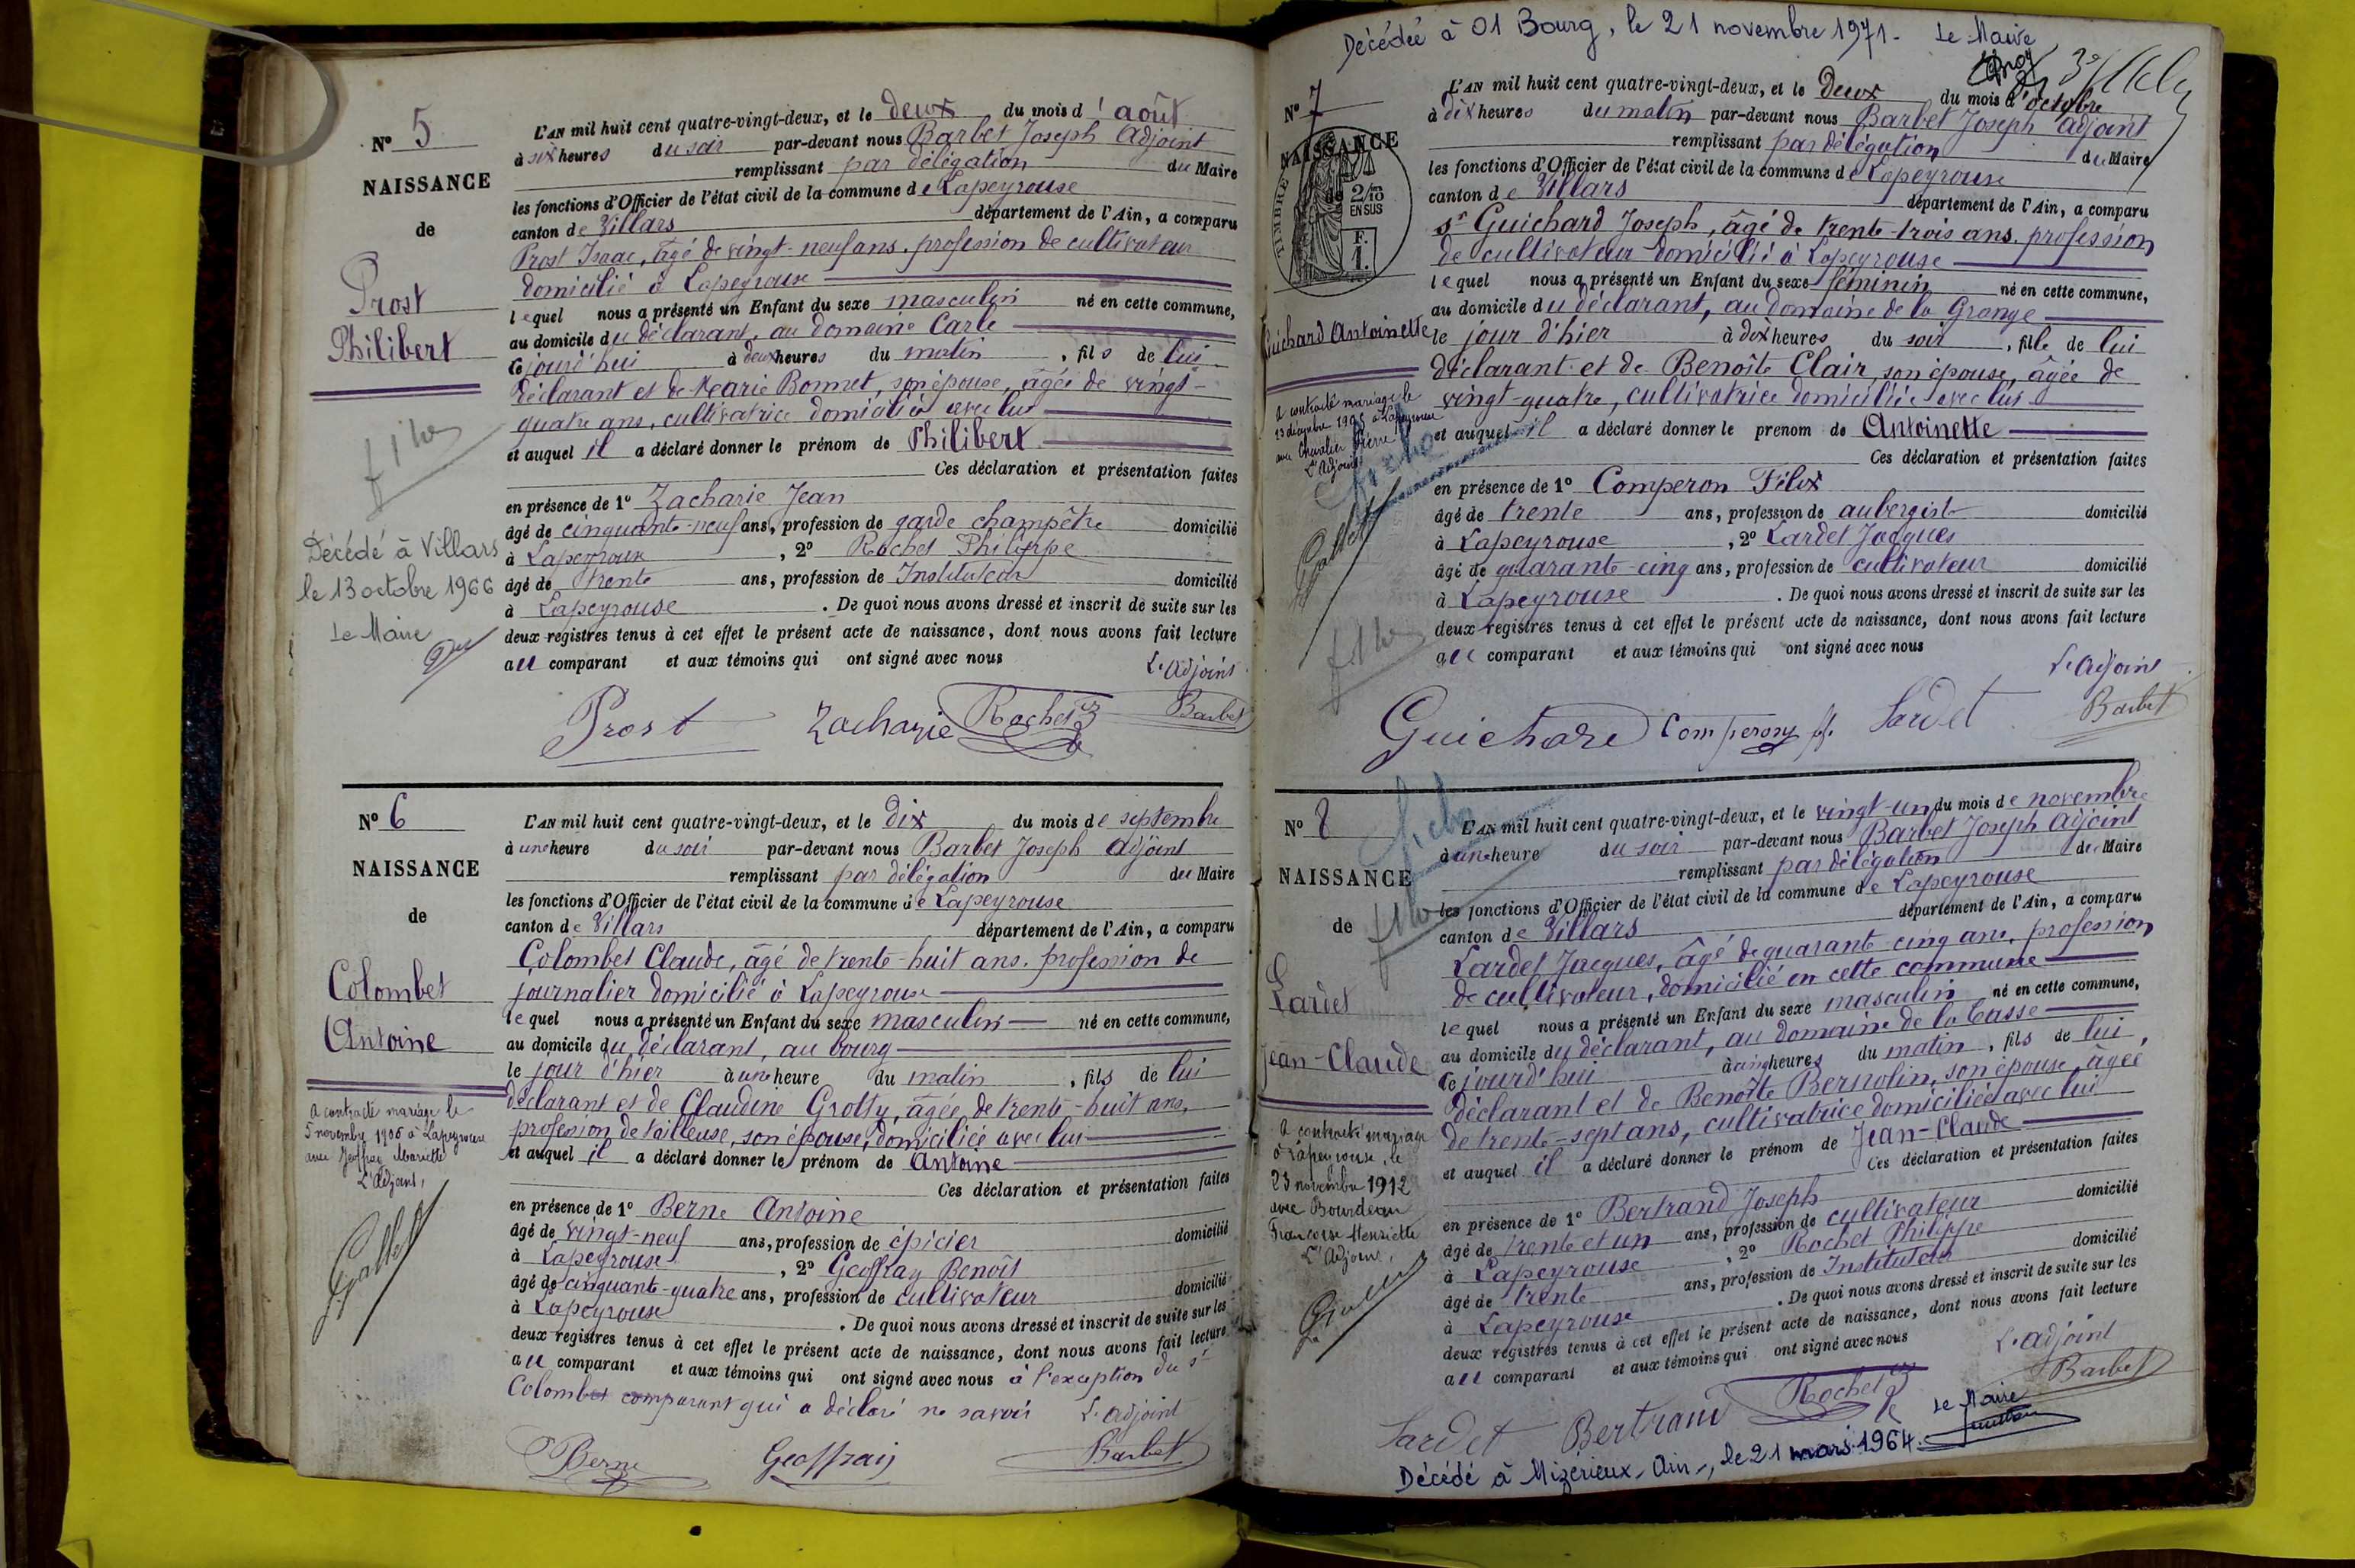 N° 5
NAISSANCE
de
Prost
Philibert
Décédé à Villars
le 13 octobre 1966
Le Maire
L'AN mil huit cent quatre-vingt-deux, et le deux du mois d'août
à six heures du soir par-devant nous Barbet Joseph Adjoint
remplissant par délégation du Maire
les fonctions d'Officier de l'état civil de la commune de Lapeyrouse
canton de Villars département de l'Ain, a comparu
Prost Isaac, âgé de vingt-neuf ans, profession de cultivateur
domicilié à Lapeyrouse
lequel nous a présenté un Enfant du sexe masculin né en cette commune,
au domicile du déclarant, au domaine Carle
ce jourd'hui à deux heures du matin, fils de lui
déclarant et de Marie Bonnet, son épouse, âgée de vingt-
quatre ans, cultivatrice domiciliée avec lui
et auquel il a déclaré donner le prénom de Philibert
Ces déclaration et présentation faites
en présence de 1° Zacharie Jean
âgé de cinquante-neuf ans, profession de garde champêtre domicilié
à Lapeyrouse, 2° Rochet Philippe
âgé de trente ans, profession de Instituteur domicilié
à Lapeyrouse. De quoi nous avons dressé et inscrit de suite sur les
deux registres tenus à cet effet le présent acte de naissance, dont nous avons fait lecture
au comparant et aux témoins qui ont signé avec nous
L'adjoint
Prost Zacharie Rochet Barbet
N° 6
NAISSANCE
de
Colombet
Antoine
a contracté mariage le
5 novembre 1906 à Lapeyrouse
avec Geoffray Mariette
L'Adjoint,
L'AN mil huit cent quatre-vingt-deux, et le dix du mois de septembre
à une heure du soir par-devant nous Barbet Joseph adjoint
remplissant par délégation du Maire
les fonctions d'Officier de l'état civil de la commune de Lapeyrouse
canton de Villars département de l'Ain, a comparu
Colombet Claude, âgé de trente-huit ans, profession de
journalier domicilié à Lapeyrouse
lequel nous a présenté un Enfant du sexe masculin né en cette commune,
au domicile du déclarant, au bourg
le jour d'hier à une heure du matin, fils de lui
déclarant et de Claudine Grotty, âgée de trente-huit ans,
profession de tailleuse, son épouse, domiciliée avec lui
et auquel il a déclaré donner le prénom de Antoine
Ces déclaration et présentation faites
en présence de 1° Berne Antoine
âgé de vingt-neuf ans, profession de épicier domicilié
à Lapeyrouse, 2° Geoffray Benoît
âgé de cinquante-quatre ans, profession de cultivateur domicilié
à Lapeyrouse. De quoi nous avons dressé et inscrit de suite sur les
deux registres tenus à cet effet le présent acte de naissance, dont nous avons fait lecture
au comparant et aux témoins qui ont signé avec nous à l'exception du sr
Colombet comparant qui a déclaré ne savoir L'adjoint
Berne Geoffray Barbet
Décédée à 01 Bourg, le 21 novembre 1971. Le Maire
N° 7
NAISSANCE
TIMBRE
de 2/10
EN SUS
F.
1.
Guichard Antoinette
a contracté mariage le
avec Chevalier Pierre
L'Adjoint
L'AN mil huit cent quatre-vingt-deux, et le deux du mois d'octobre
à dix heures du matin par-devant nous Barbet Joseph adjoint
remplissant par délégation du Maire
les fonctions d'Officier de l'état civil de la commune de Lapeyrouse
canton de Villars département de l'Ain, a comparu
sr Guichard Joseph, âgé de trente-trois ans, profession
de cultivateur domicilié à Lapeyrouse
lequel nous a présenté un Enfant du sexe féminin né en cette commune,
au domicile du déclarant, au domaine de la Grange
le jour d'hier à dix heures du soir, fille de lui
déclarant et de Benoîte Clair, son épouse, âgée de
vingt-quatre, cultivatrice domiciliée avec lui
et auquel il a déclaré donner le prénom de Antoinette
Ces déclaration et présentation faites
en présence de 1° Comperon Félix
âgé de trente ans, profession de aubergiste domicilié
à Lapeyrouse, 2° Lardet Jacques
âgé de quarante-cinq ans, profession de cultivateur domicilié
à Lapeyrouse. De quoi nous avons dressé et inscrit de suite sur les
deux registres tenus à cet effet le présent acte de naissance, dont nous avons fait lecture
au comparant et aux témoins qui ont signé avec nous
L'adjoint
Guichard Lardet Barbet
N° 8
NAISSANCE
de
Lardet
Jean-Claude
a contracté mariage
à Lapeyrouse, le
23 novembre 1912
avec Bourdeau
Françoise Henriette
L'Adjoint,
L'AN mil huit cent quatre-vingt-deux, et le vingt-un du mois de novembre
à une heure du soir par-devant nous Barbet Joseph Adjoint
remplissant par délégation du Maire
les fonctions d'Officier de l'état civil de la commune de Lapeyrouse
canton de Villars département de l'Ain, a comparu
Lardet Jacques, âgé de quarante-cinq ans, profession
de cultivateur, domicilié en cette commune
lequel nous a présenté un Enfant du sexe masculin né en cette commune,
au domicile du déclarant, au domaine de la
ce jourd'hui à cinq heures du matin, fils de lui,
déclarant et de Benoîte Bernolin, son épouse, âgée
de trente-sept ans, cultivatrice domiciliée avec lui
et auquel il a déclaré donner le prénom de Jean-Claude
Ces déclaration et présentation faites
en présence de 1° Bertrand Joseph
âgé de trente et un ans, profession de cultivateur domicilié
à Lapeyrouse, 2° Rochet Philippe
âgé de trente ans, profession de Instituteur domicilié
à Lapeyrouse. De quoi nous avons dressé et inscrit de suite sur les
deux registres tenus à cet effet le présent acte de naissance, dont nous avons fait lecture
au comparant et aux témoins qui ont signé avec nous
L'adjoint
Lardet Bertrand Rochet Barbet
Le Maire
Décédé à Mizérieux, Ain, le 21 mars 1964.